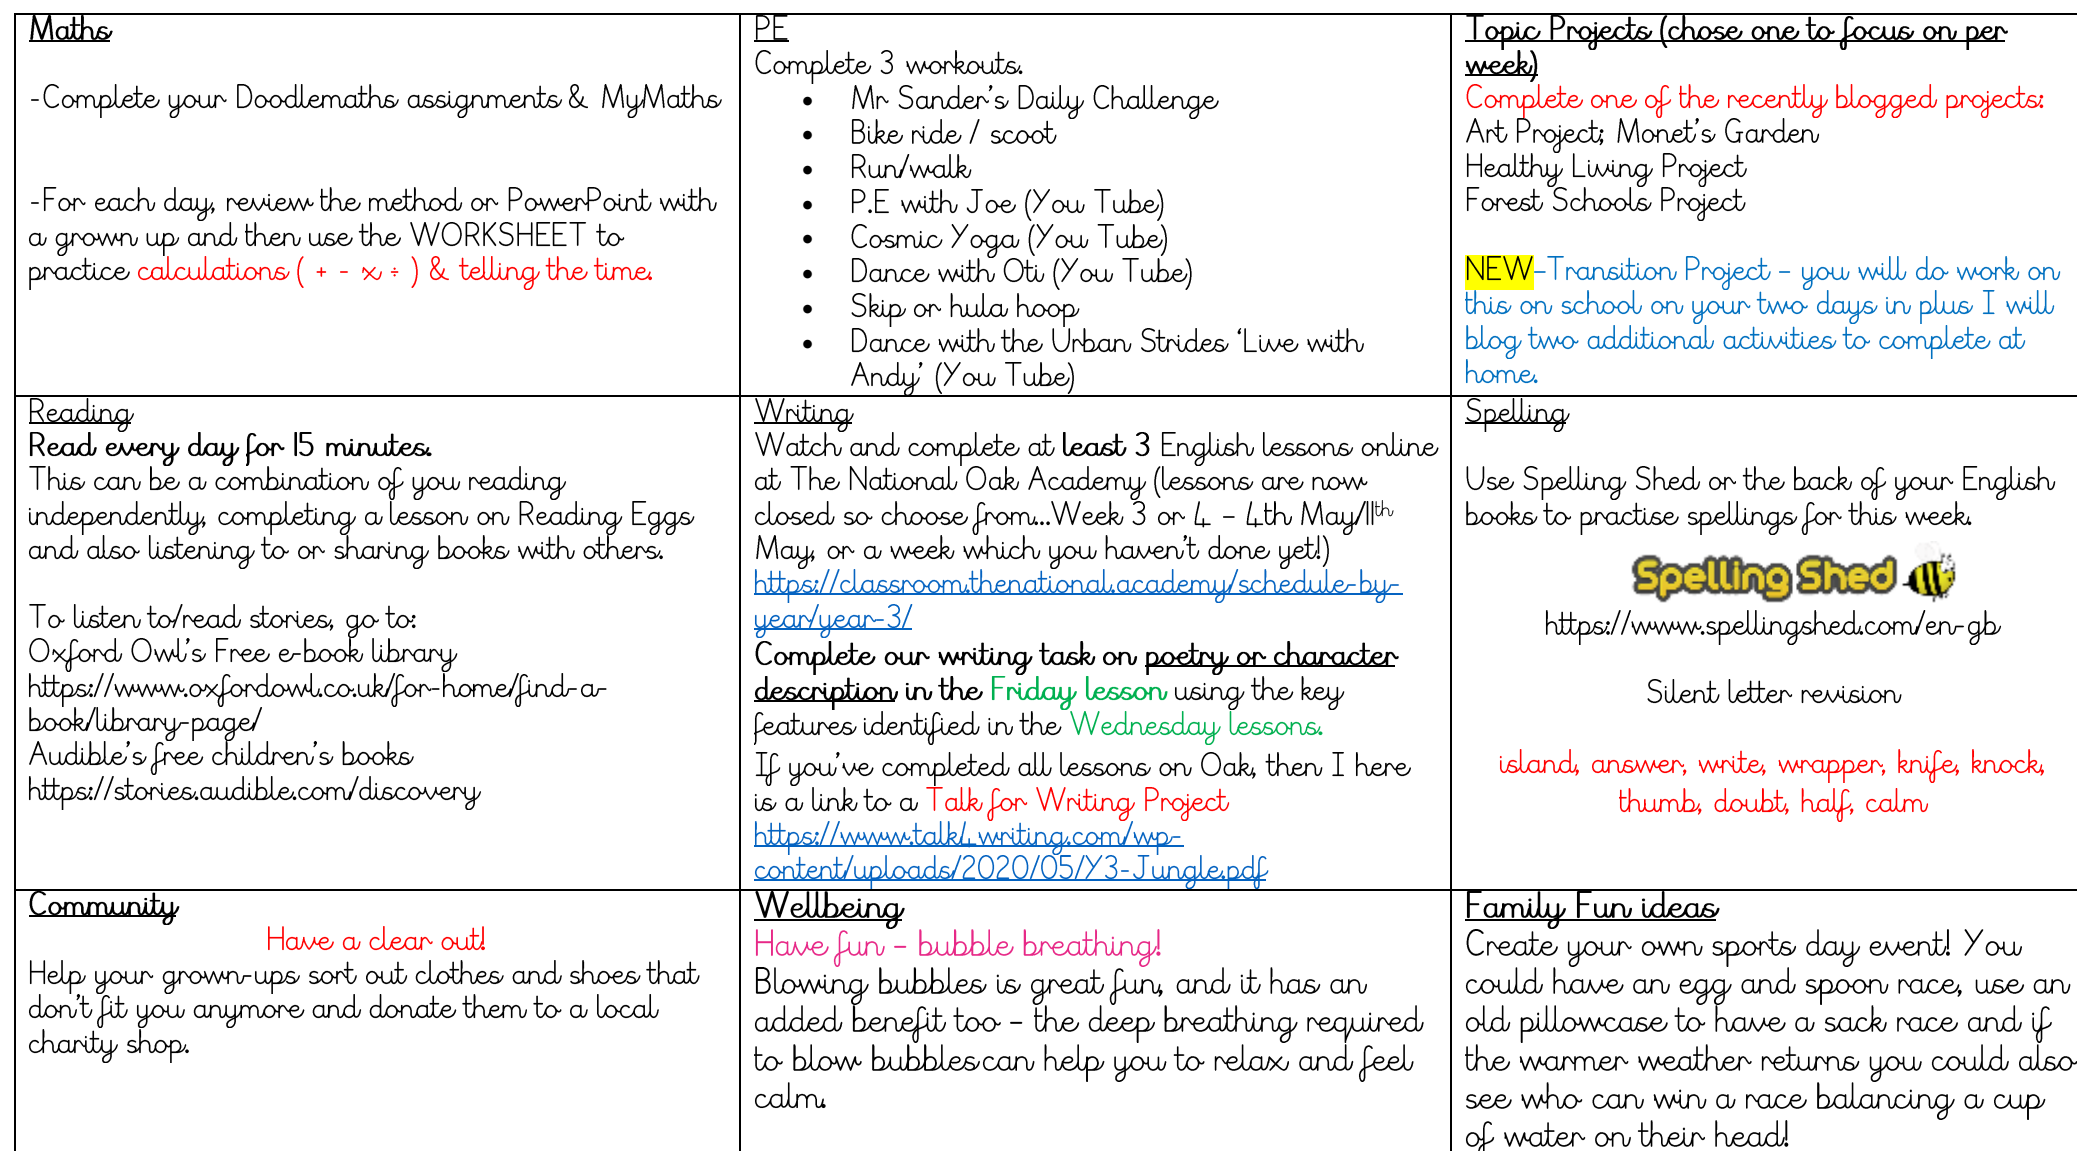 Maths
-Complete your Doodlemaths assignments & MyMaths
-For each day, review the method or PowerPoint with
a grown up and then use the WORKSHEET to
practice calculations ( + - x ÷ ) & telling the time.
PE
Complete 3 workouts.
• Mr Sander's Daily Challenge
• Bike ride / scoot
• Run/walk
• P.E with Joe (You Tube)
• Cosmic Yoga (You Tube)
• Dance with Oti (You Tube)
• Skip or hula hoop
• Dance with the Urban Strides 'Live with
Andy' (You Tube)
Topic Projects (chose one to focus on per
week)
Complete one of the recently blogged projects:
Art Project; Monet's Garden
Healthy Living Project
Forest Schools Project
NEW-Transition Project – you will do work on
this on school on your two days in plus I will
blog two additional activities to complete at
home.
Reading
Read every day for 15 minutes.
This can be a combination of you reading
independently, completing a lesson on Reading Eggs
and also listening to or sharing books with others.
To listen to/read stories, go to:
Oxford Owl's Free e-book library
https://www.oxfordowl.co.uk/for-home/find-a-
book/library-page/
Audible's free children's books
https://stories.audible.com/discovery
Writing
Watch and complete at least 3 English lessons online
at The National Oak Academy (lessons are now
closed so choose from...Week 3 or 4 – 4th May/11th
May, or a week which you haven't done yet!)
https://classroom.thenational.academy/schedule-by-
year/year-3/
Complete our writing task on poetry or character
description in the Friday lesson using the key
features identified in the Wednesday lessons.
If you've completed all lessons on Oak, then I here
is a link to a Talk for Writing Project
https://www.talk4writing.com/wp-
content/uploads/2020/05/Y3-Jungle.pdf
Spelling
Use Spelling Shed or the back of your English
books to practise spellings for this week.
Spelling Shed
https://www.spellingshed.com/en-gb
Silent letter revision
island, answer, write, wrapper, knife, knock,
thumb, doubt, half, calm
Community
Have a clear out!
Help your grown-ups sort out clothes and shoes that
don't fit you anymore and donate them to a local
charity shop.
Wellbeing
Have fun – bubble breathing!
Blowing bubbles is great fun, and it has an
added benefit too – the deep breathing required
to blow bubbles can help you to relax and feel
calm.
Family Fun ideas
Create your own sports day event! You
could have an egg and spoon race, use an
old pillowcase to have a sack race and if
the warmer weather returns you could also
see who can win a race balancing a cup
of water on their head!